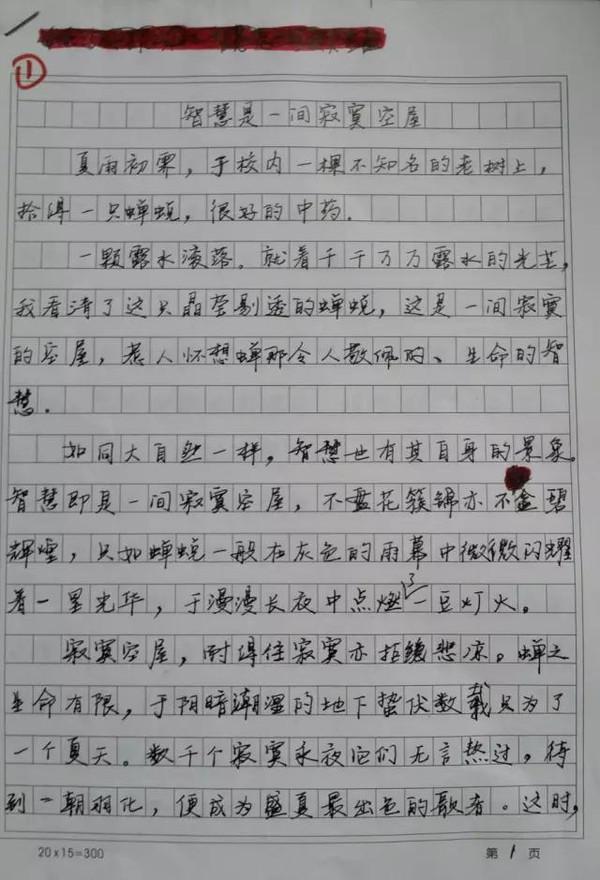 ①
智慧是一间寂寞空屋
夏雨初霁，于校内一棵不知名的老树上，
拾得一只蝉蜕，很好的中药.
一颗露水滚落.就着千千万万露水的光芒,
我看清了这只晶莹剔透的蝉蜕，这是一间寂寞
的空屋，惹人怀想蝉那令人敬佩的、生命的智
慧.
如同大自然一样，智慧也有其自身的景象.
智慧即是一间寂寞空屋，不蓝花簇锦亦不金碧
辉煌，只如蝉蜕一般在灰色的雨幕中微微闪耀
着一星光华，于漫漫长夜中点燃了一豆灯火。
寂寞空屋，耐得住寂寞亦拒绝悲凉。蝉之
生命有限，于阴暗潮湿的地下蛰伏数载只为了
一个夏天。数千个寂寞永夜它们无言熬过，待
到一朝羽化，便成为盛夏最出色的歌者。这时,
20×15=300
第 1 页